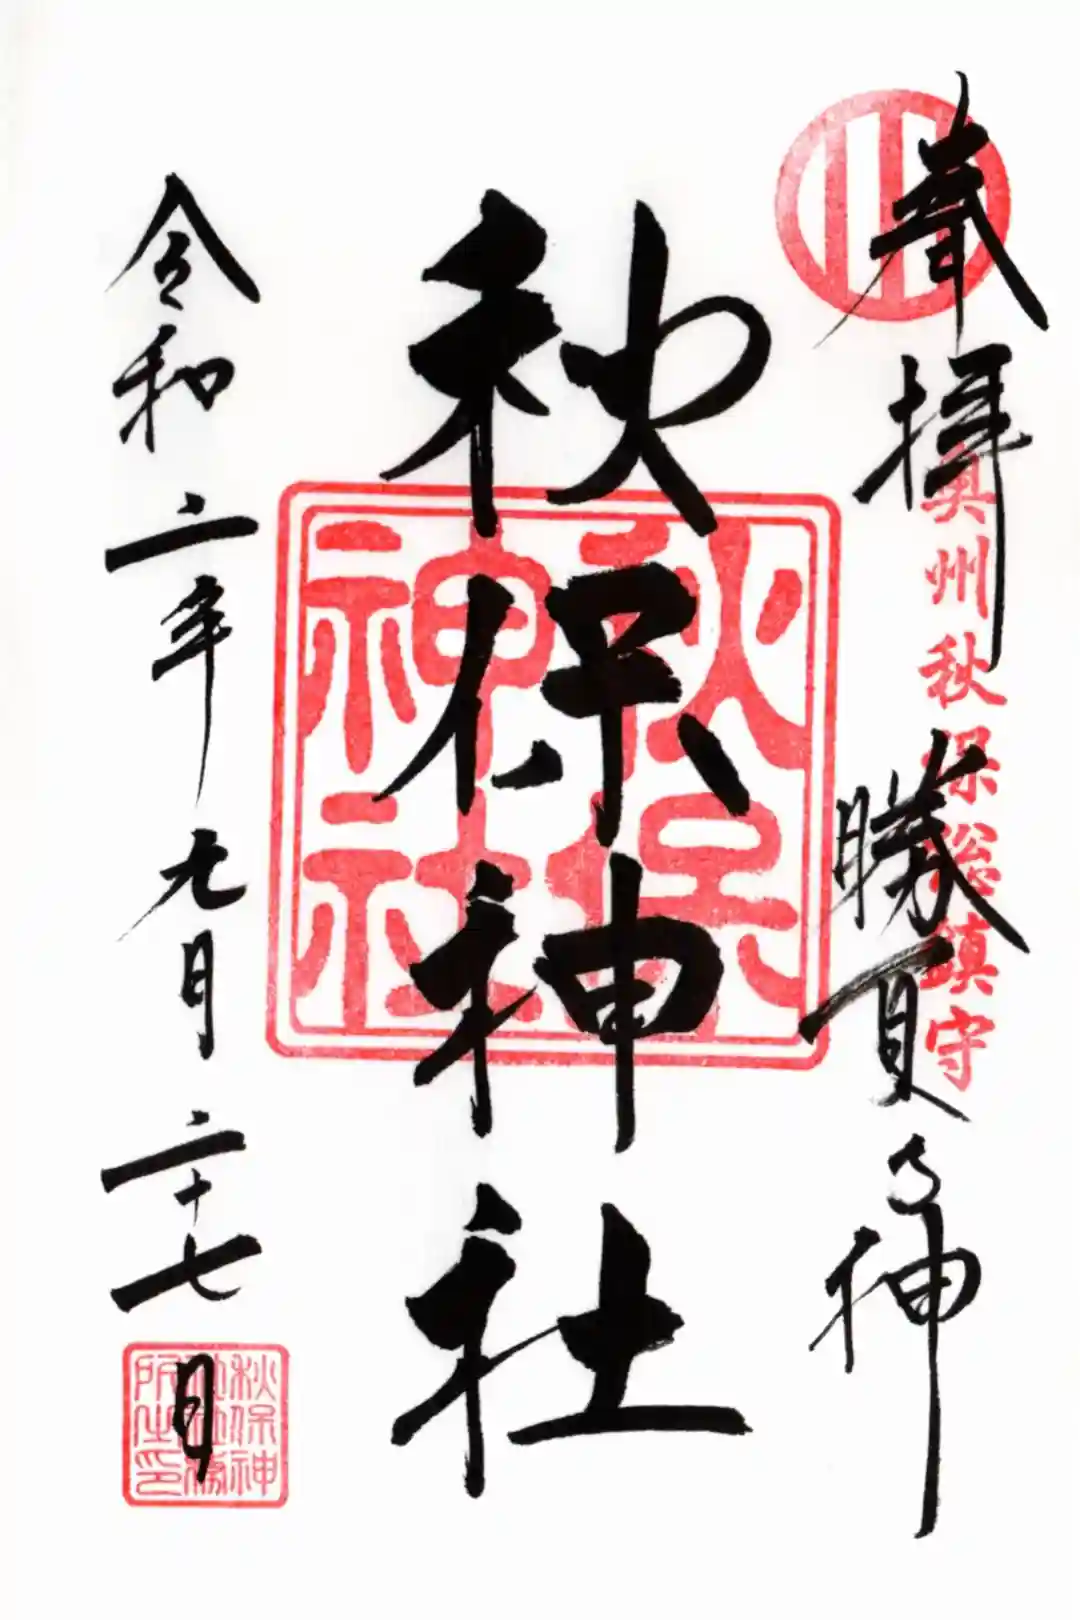 奉拝
奥州秋保総鎮守
勝負の神
秋保神社
秋保
神社
令和二年九月二十七日
秋保神
社社務
所之印